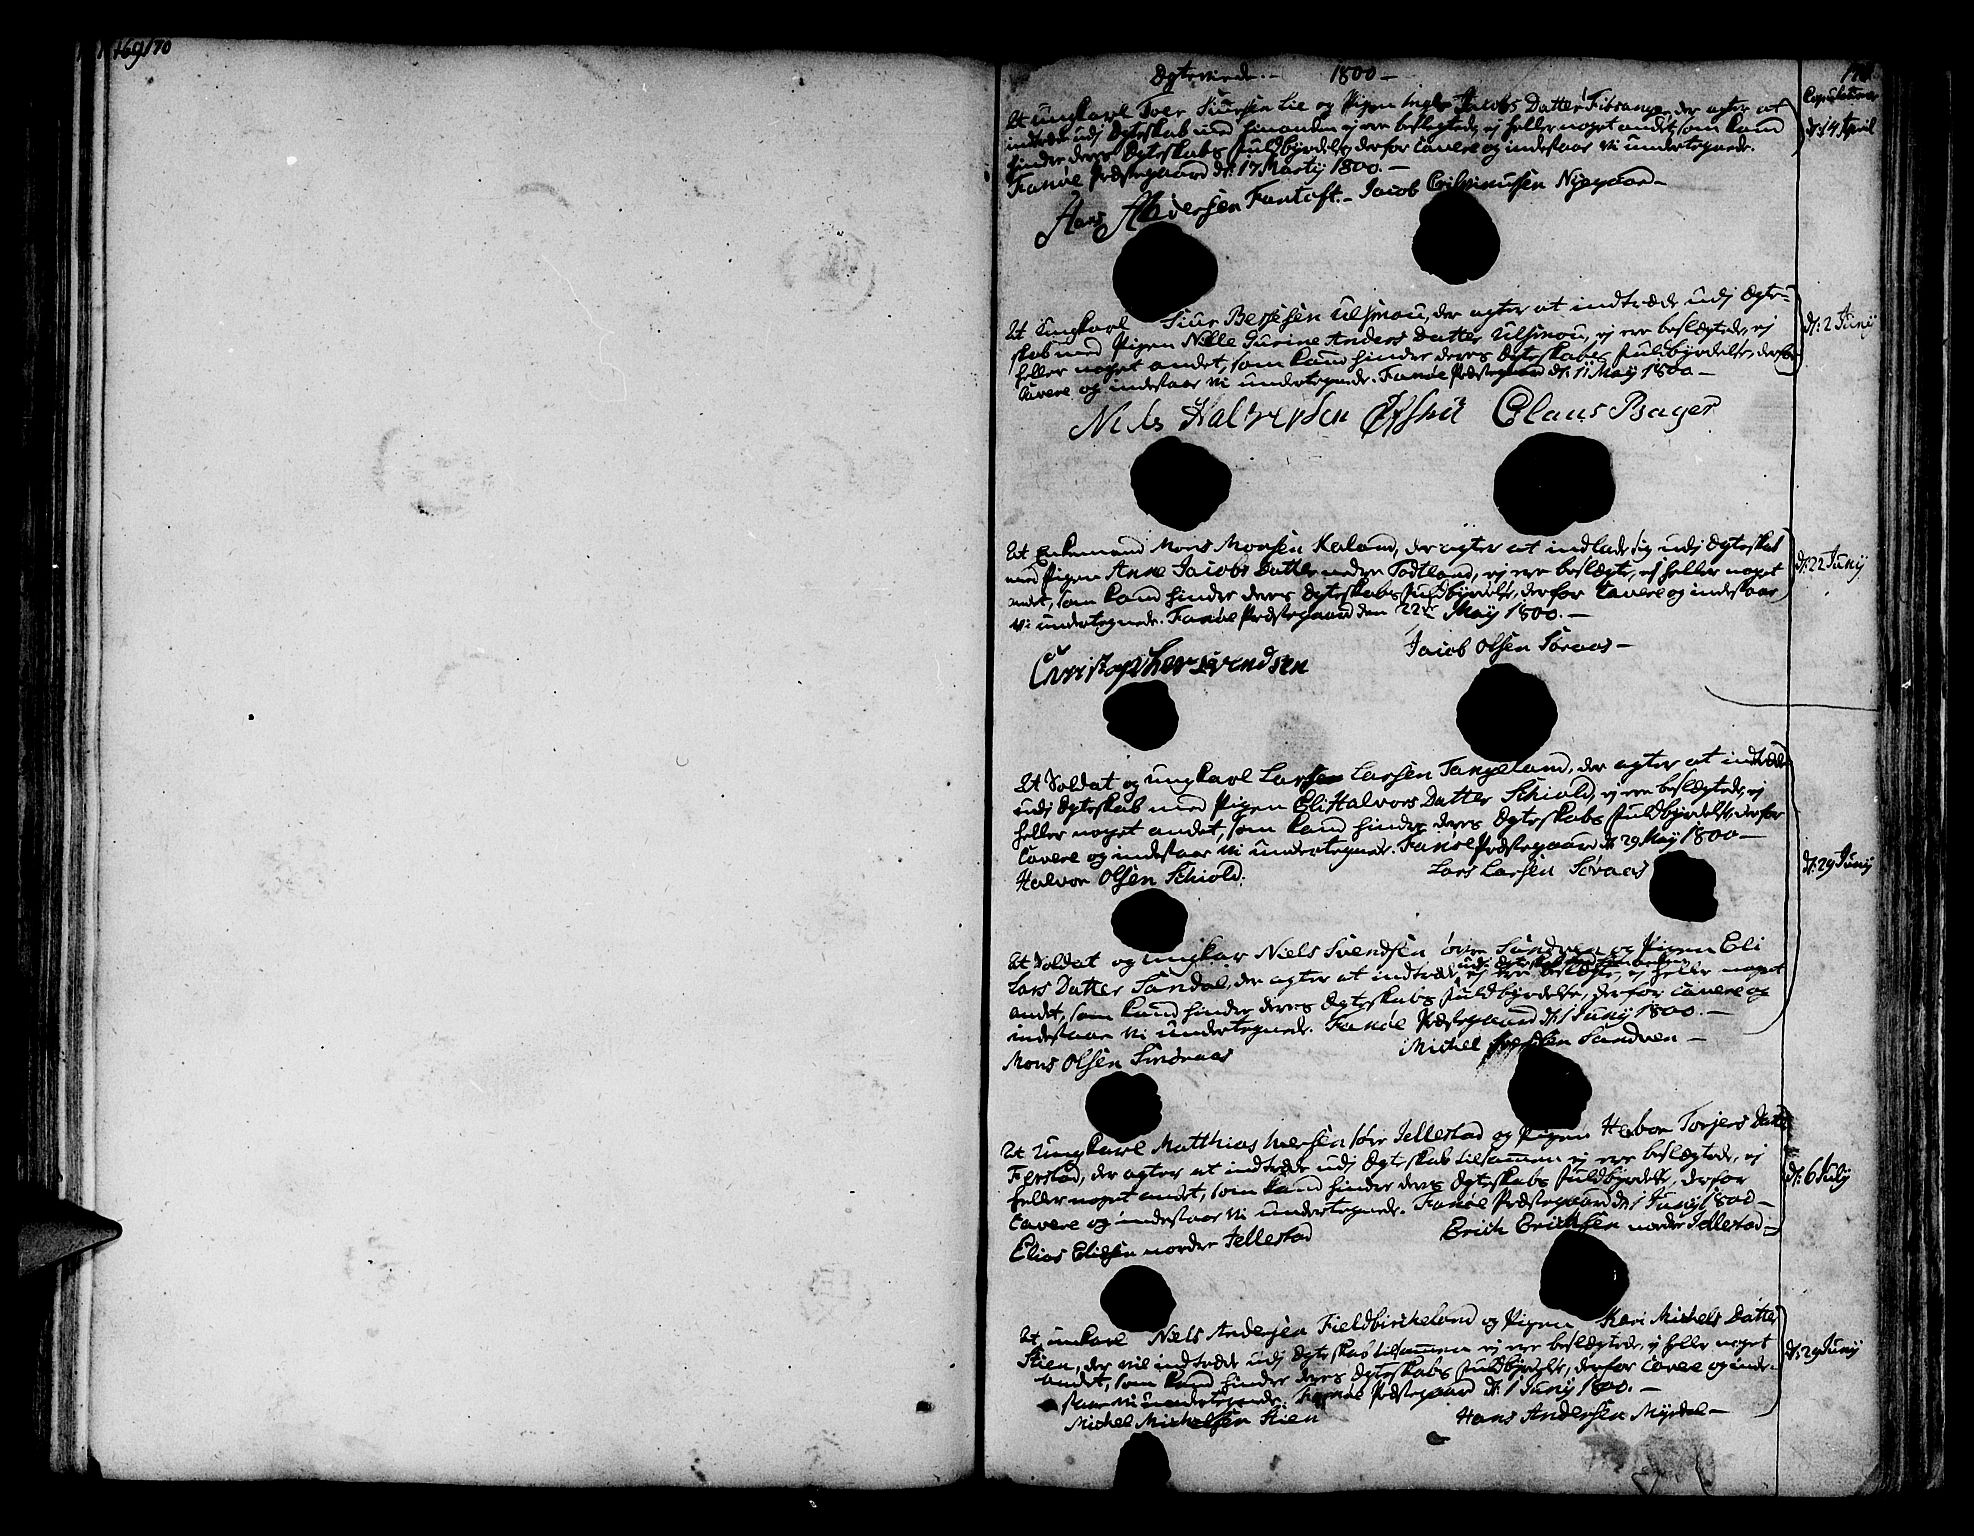 169/70
Egteviede.- 1800-
171
Copulerede
At ungkarl Toer Siursen Lie og Pigen Jacobs Datter der agter at
indtræde udj Egteskab med hinanden ej ere beslegtede, ej heller noget andet, som kand
hindre deres Egteskabs Fuldbyrdelse, derfor Cavere og indestaar vi undertegnede.
Fanøe Præstegaard dt: 17 Marty 1800.-
dt: 14 April
Hans Andersen Fantoft.- Jacob Nygaard-
At Ungkarl Siur Ulsmou, der agter at indtræde udj Egte-
skab med Pigen Nille Gurine Anders Datter Ulsmou, ej ere beslægtede, ej
heller noget andet, som kand hinder deres Egteskabs Fuldbyrdelse, derfor
Cavere og indestaar vi undertegnede. Fanøe Præstegaard dt: 11 May 1800-
dt: 2 Juny
Niels Claus Bager
At Enkemand Mons Monsen Kaland, der agter at indlade sig udj Egteskab
med Pigen Anne Jacobs Datter nedre Todtland, ej ere beslægte, ej heller noget
andet, som kand hinder deres Egteskabs Fuldbyrdelse, derfor Cavere og indestaar
vi undertegnede. Fanøe Præstegaard den 22de May 1800.-
dt: 22 Juny
Jacob Olsen Søraas-
Christopher Svendsen
At Soldat og ungkarl Larsen Tangeland, der agter at indtræde
udj Egteskab med Pigen Eli Halvors Datter Schiold, ej ere beslægtede, ej
heller noget andet, som kand hinder deres Egteskabs Fuldbyrdelse, derfor
Cavere og indestaar vi undertegnede. Fanøe Præstegaard dt 29 May 1800-
Halvor Olsen Schiold. Lars Larsen Søraas
dt: 29 Juny
At Soldat og ungkar Niels Svendsen øvre Sandven og Pigen Eli
udj Egteskab
Lars Datter Sandal, der agter at indtræde, ej ere beslægte, ej heller noget
andet, som kand hinder deres Egteskabs Fuldbyrdelse, derfor Cavere og
indestaar vi undertegnede. Fanøe Præstegaard dt: 1 Juny 1800.-
Mons Olsen Smøraas Michel Sandven-
At Ungkarl Matthias Iversen Jellestad og Pigen Torjers Datter
der agter at indtræde udj Egteskab tilsammen ej ere beslægtede, ej
heller noget andet, som kand hinder deres Egteskabs Fuldbyrdelse, derfor
Cavere og indestaar vi undertegnede. Fanøe Præstegaard dt: 1 Juny 1800-
dt: 6 July
Elias Eliesen nordre Jellestad Erich Erichsen nordre Jellestad-
At unkarl Niels Andersen Fieldbircheland og Pigen Kari Michels Datter
Stien, der vil indtræde udj Egteskab tilsammen ej ere beslægtede, ej heller noget
andet, som kand hinder deres Egteskabs Fuldbyrdelse, derfor Cavere og inde-
staar vi undertegnede. Fanøe Præstegaard dt: 1 Juny 1800.-
dt: 29 Juny
Michel Michelsen Stien Hans Andersen Myrdal-